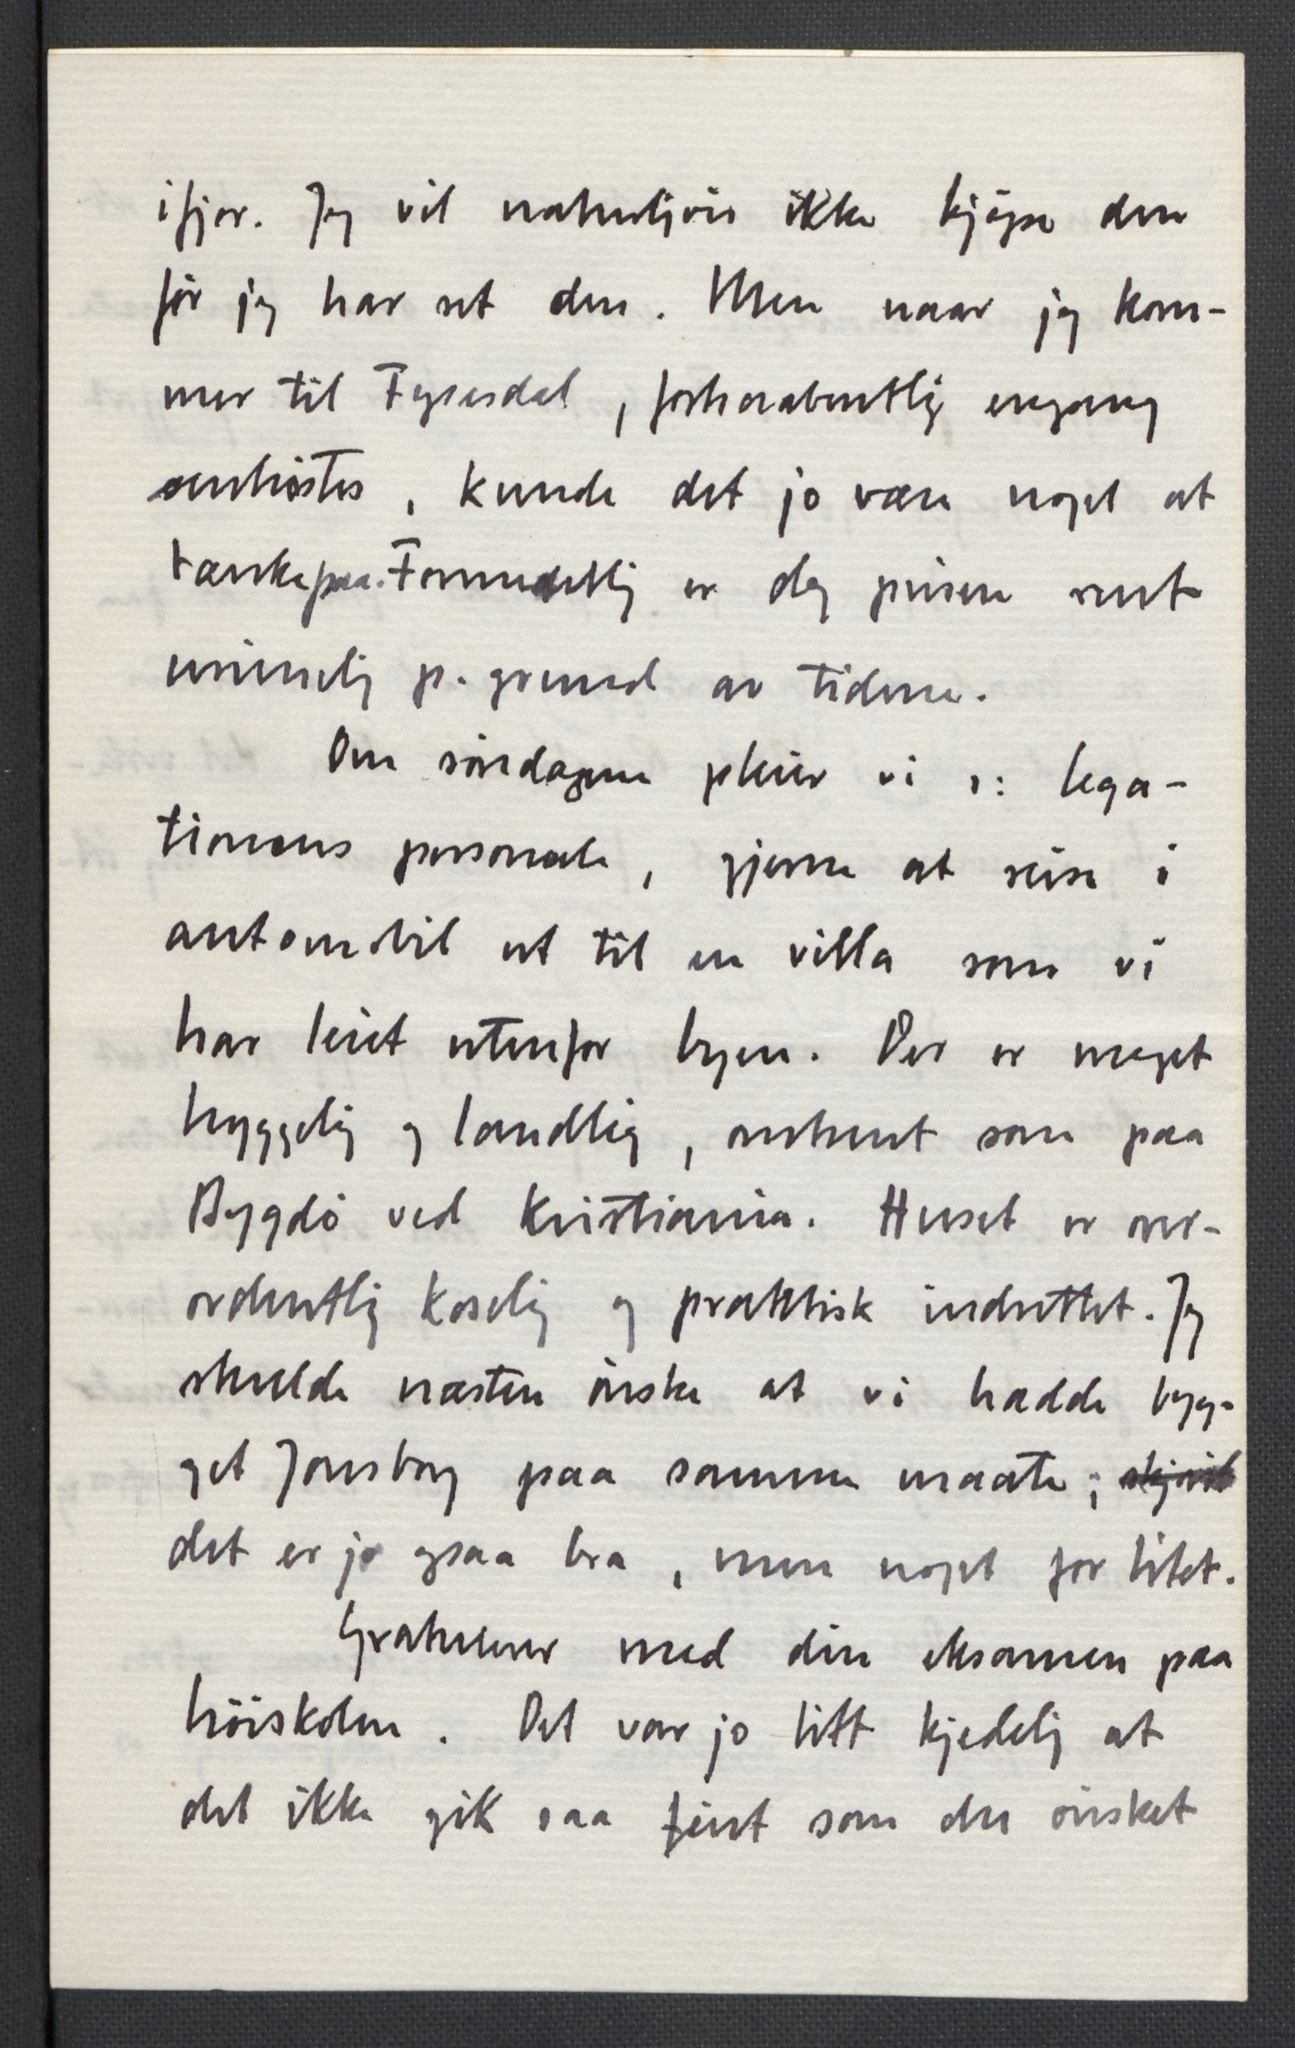 ifjor. Jeg vil naturligvis ikke kjöpe den
för jeg har set den. Men naar jeg kom-
mer til Fyresdal, forhaabentlig engang
senhöstes, kunde det jo være noget at
tænke paa. Formodentlig er dog prisen rent
urimelig p. grund av tidene.
Om söndagene pleier vi ɔ: lega-
tionens personale, gjerne at reise i
automobil ut til en villa som vi
har leiet utenfor byen. Der er meget
hyggelig og landlig, omtrent som paa
Bygdö ved Kristiania. Huset er over-
ordentlig koselig og praktisk indrettet. Jeg
skulde næsten önske at vi hadde byg-
get Jonsborg paa samme maate;
det er jo ogsaa bra, men noget for litet.
Gratulerer med din eksamen paa
höiskolen. Det var jo litt kjedelig at
det ikke gik saa feint som du önsket